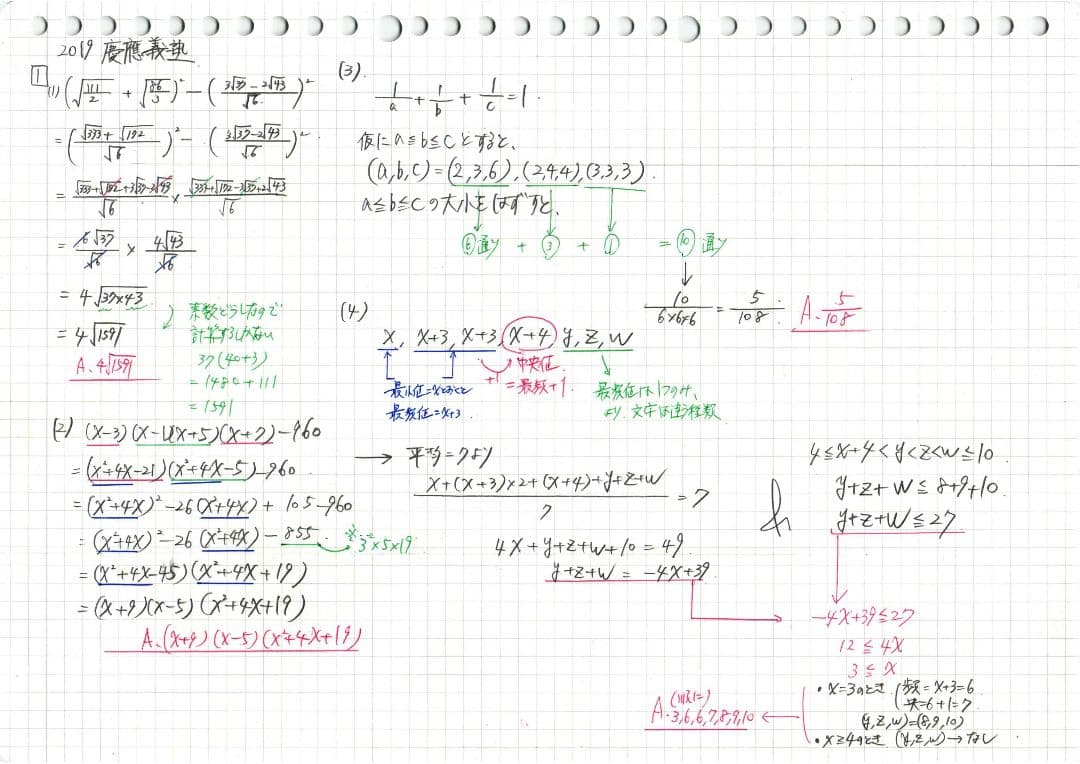 2019 慶應義塾
1
(1) (√111/2 + √86/3)² − (3√37−2√43/√6)²
= (√333+√172/√6)² − (3√37−2√43/√6)²
= √333+√172+3√37−2√43/√6 × √333+√172−3√37+2√43/√6
= 6√37/√6 × 4√43/√6
= 4√37×43
= 4√1591
A. 4√1591
素数どうしなので
計算するしかない
37(40+3)
= 1480+111
= 1591
(2) (x−3)(x−1)(x+5)(x+7)−960
= (x²+4x−21)(x²+4x−5)−960
= (x²+4x)²−26(x²+4x)+105−960
= (x²+4x)²−26(x²+4x)−855
3²×5×19
= (x²+4x−45)(x²+4x+19)
= (x+9)(x−5)(x²+4x+19)
A. (x+9)(x−5)(x²+4x+19)
(3).
1/a + 1/b + 1/c = 1.
仮にa≦b≦cとすると、
(a,b,c)=(2,3,6),(2,4,4),(3,3,3).
a≦b≦cの大小をはずすと、
⑥通り + ③ + ① = ⑩通り
10/6×6×6 = 5/108. A. 5/108
(4)
x, x+3, x+3, x+4, y, z, w
最小値=xとおくと
最頻値=x+3
+1
中央値
=最頻+1.
最頻値は1つのみ、
より、文字は違う程数
→ 平均=7より
x+(x+3)×2+(x+4)+y+z+w/7 = 7
4x+y+z+w+10=49
y+z+w = −4x+39
&
4≦x+4<y<z<w≦10
y+z+w≦8+9+10
y+z+w≦27
−4x+39≦27
12≦4x
3≦x
・x=3のとき 頻=x+3=6
央=6+1=7
(y,z,w)=(8,9,10)
・x≧4のとき (y,z,w)→なし
(順に)
A. 3,6,6,7,8,9,10 ←